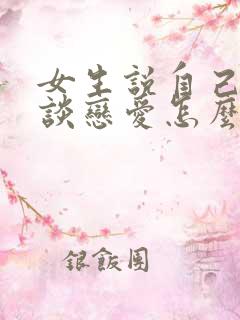 女生説自己
談戀愛怎麼
銀飯團